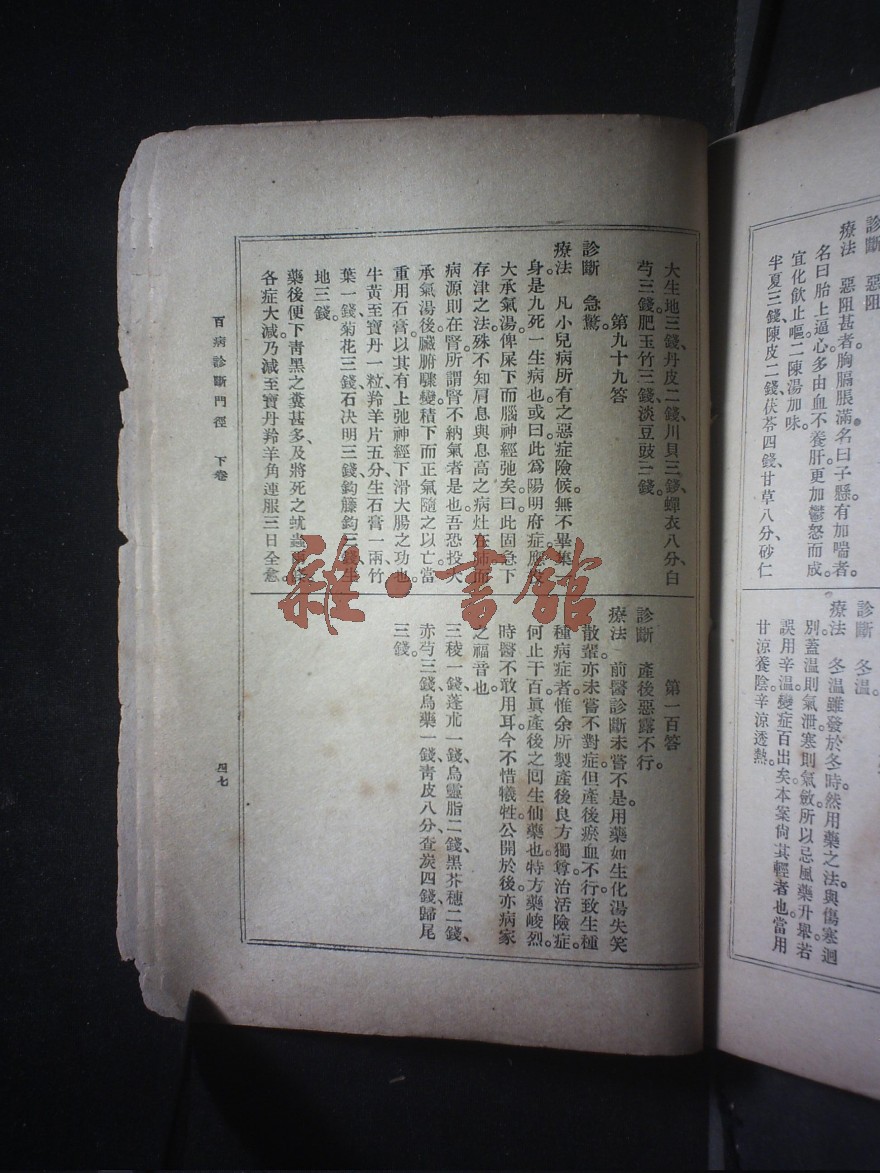 診斷　惡阻
療法　惡阻甚者。胸膈脹滿。名曰子懸。有加喘者。
名曰胎上逼心。多由血不養肝。更加鬱怒而成。
宜化飲止嘔。二陳湯加味。
半夏三錢、陳皮二錢、茯苓四錢、甘草八分、砂仁
診斷　冬溫。
療法　冬溫雖發於冬時。然用藥之法。與傷寒迥
別。蓋溫則氣泄。寒則氣斂。所以忌風藥升舉。若
誤用辛溫。變症百出矣。本案尙其輕者也。當用
甘涼養陰。辛涼透熱。
大生地三錢、丹皮二錢、川貝三錢、蟬衣八分、白
芍三錢、肥玉竹三錢、淡豆豉三錢。
第九十九答
診斷　急驚。
療法　凡小兒病所有之惡症險候。無不畢集
身。是九死一生病也。或曰。此爲陽明府症。應
大承氣湯。俾屎下而腦神經弛矣。曰。此固急下
存津之法。殊不知肩息與息高之病灶在肺。而
病源則在腎。所謂腎不納氣者是也。吾恐投大
承氣湯後。臟腑驟變。積下而正氣隨之以亡。當
重用石膏。以其有上弛神經下滑大腸之功也。
牛黃至寶丹一粒、羚羊片五分、生石膏一兩、竹
葉一錢、菊花三錢、石決明三錢、鈎籐鈎三錢、生
地三錢。
藥後便下靑黑之糞甚多、及將死之蚘蟲
各症大減。乃減至寶丹羚羊角。連服三日全愈。
第一百答
診斷　產後惡露不行。
療法　前醫診斷未嘗不是。用藥如生化湯失笑
散輩。亦未嘗不對症。但產後瘀血不行。致生種
種病症者。惟余所製產後良方。獨尊治活險症。
何止千百。眞產後之囘生仙藥也。特方藥峻烈。
時醫不敢用耳。今不惜犧牲。公開於後。亦病家
之福音也。
三稜一錢、蓬朮一錢、烏靈脂二錢、黑芥穗二錢、
赤芍三錢、烏藥一錢、靑皮八分、查炭四錢、歸尾
三錢。
百病診斷門徑　下卷
四七
雜·書館